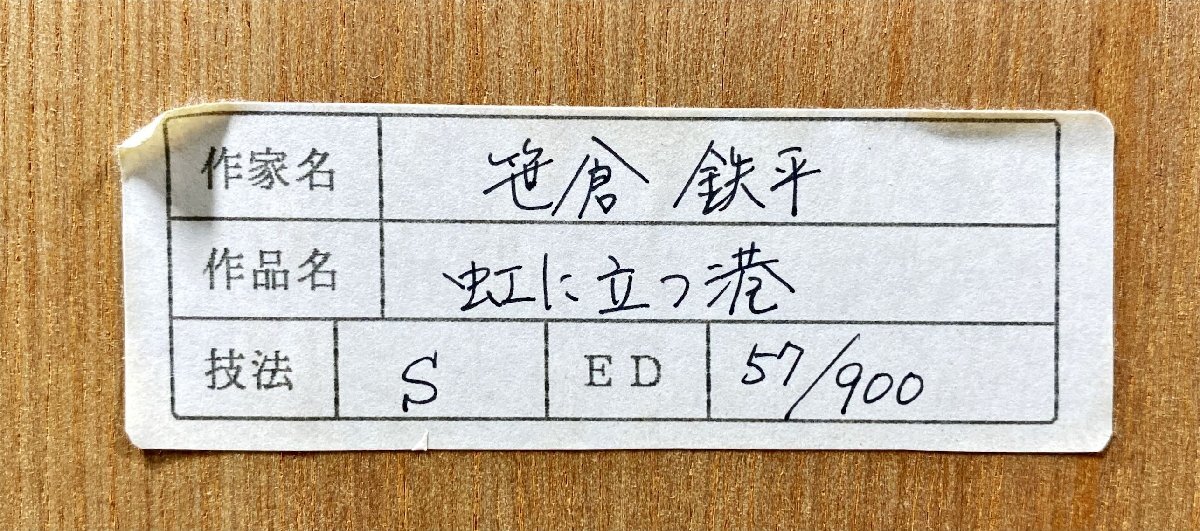 作家名 笹倉 鉄平
作品名 虹に立つ港
技法 S ED 57/900